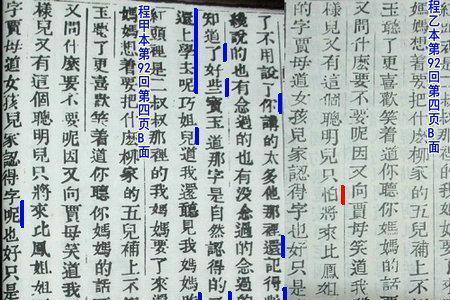 程乙本第92回第四页B面
媽媽想着要把什麼柳家的五兒補上不
玉聽了更喜歡笑着道你聽你媽媽的話
又問什麼要不要呢因又向賈母笑道我
樣兒又有這個聰明兒只怕將來比鳳姐
字賈母道女孩兒家認得字也好只是
了不用說了你講的太多他那裡還記得
纔說的也有念過的也有沒念過的念過的
知道了好些寶玉道那字是自然認得的
還上學去呢巧姐兒道我還聽見我媽媽昨
紅頭裡是二叔叔那裡的我媽媽要了來還
程甲本第92回第四页B面
媽媽想着要把什麼柳家的五兒補上不
玉聽了更喜歡笑着道你聽你媽媽的話
又問什麼要不要呢因又向賈母笑道我
樣兒又有這個聰明兒只將來比鳳姐姐
字賈母道女孩兒家認得字呢也好只是